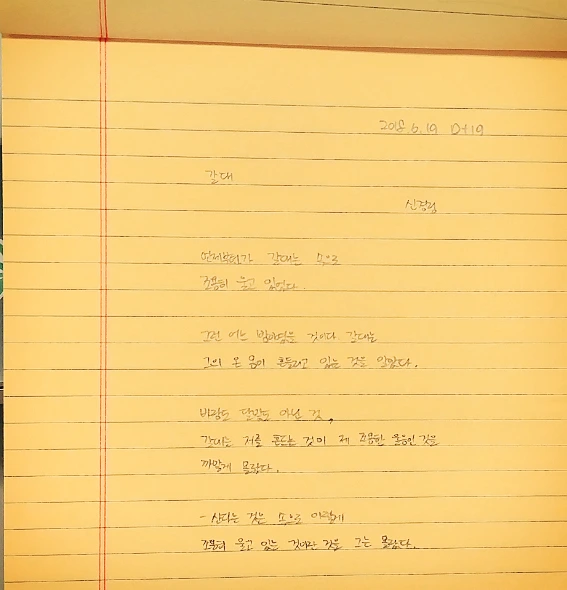 6.19 D+19
갈대
신경림
언제부턴가 갈대는 속으로
조용히 울고 있었다.
그런 어느 밤이었을 것이다 갈대는
그의 온 몸이 흔들리고 있는 것을 알았다.
바람도 달빛도 아닌 것,
갈대는 저를 흔드는 것이 제 조용한 울음인 것을
까맣게 몰랐다.
- 산다는 것은 속으로 이렇게
조용히 울고 있는 것이란 것을 그는 몰랐다.